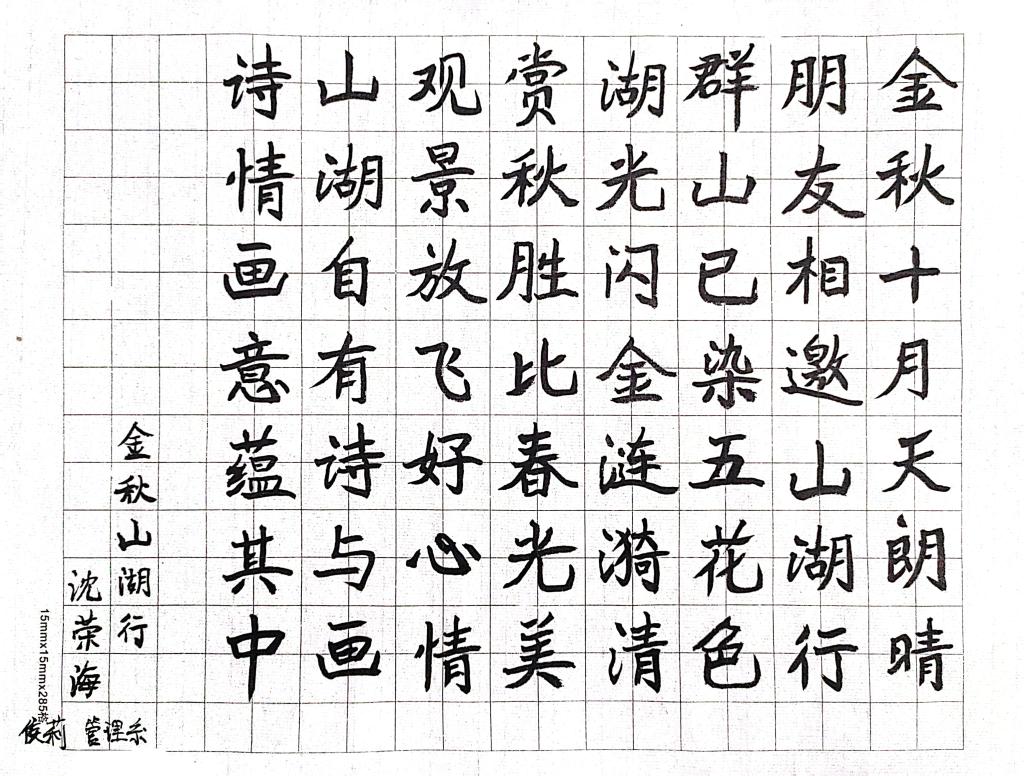 金秋十月天朗晴
朋友相邀山湖行
群山已染五花色
湖光闪金涟漪清
赏秋胜比春光美
观景放飞好心情
山湖自有诗与画
诗情画意蕴其中
金秋山湖行
沈荣海
侯莉 管理系
15mmx15mmx285